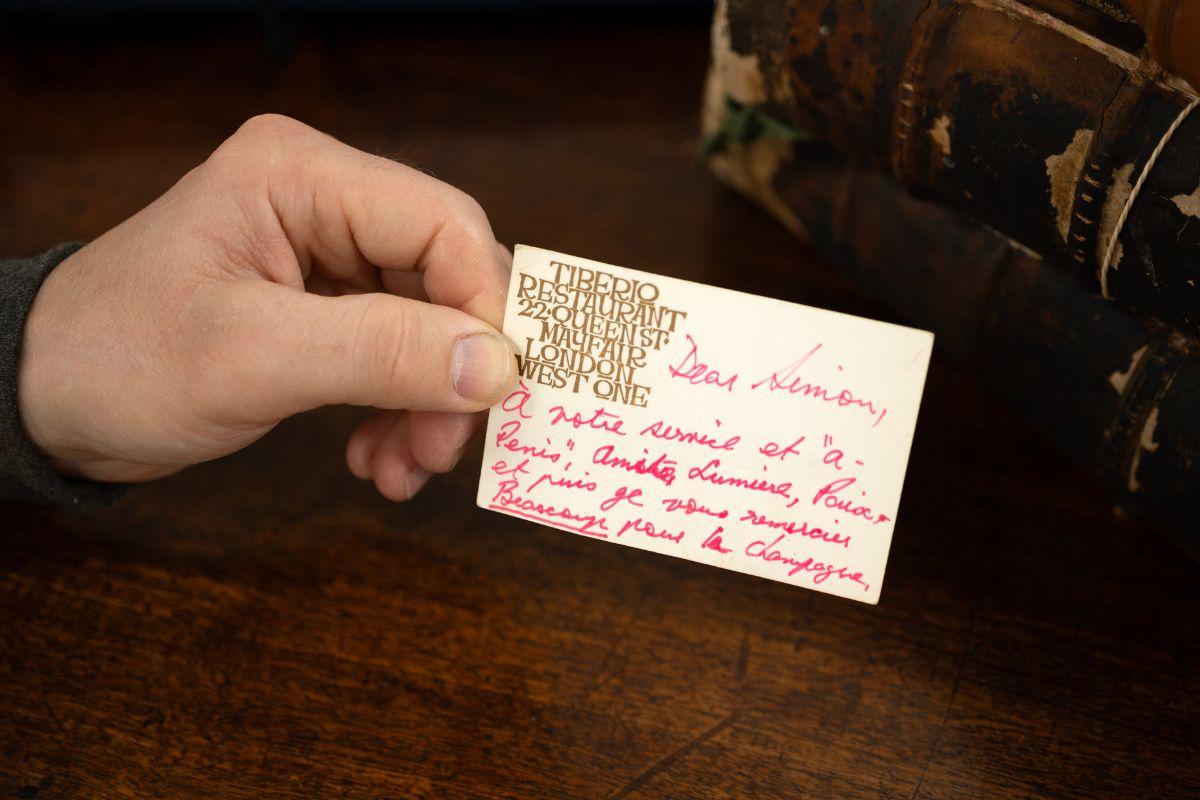 TIBERIO
RESTAURANT
22·QUEEN ST·
MAYFAIR
LONDON
WEST ONE
Dear Simon,
à notre service et "à-
Penis", Amitié, Lumière, Paix,
et puis ge vous remercier
Beaucoup pour la Champagne,